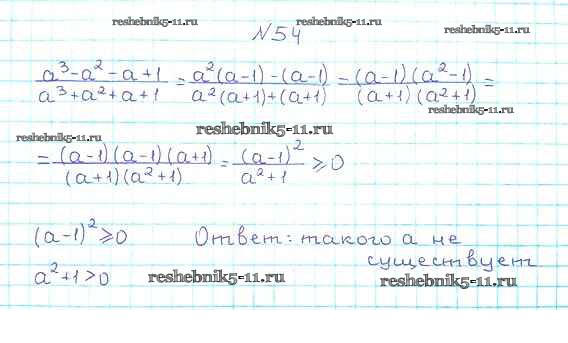 reshebnik5-11.ru reshebnik5-11.ru reshebnik5-11.ru
№54
(a³-a²-a+1)/(a³+a²+a+1) = (a²(a-1)-(a-1))/(a²(a+1)+(a+1)) = ((a-1)(a²-1))/((a+1)(a²+1)) =
reshebnik5-11.ru
reshebnik5-11.ru
reshebnik5-11.ru
= ((a-1)(a-1)(a+1))/((a+1)(a²+1)) = (a-1)²/(a²+1) ≥ 0
(a-1)² ≥ 0 Ответ: такого а не
существует
a²+1>0 reshebnik5-11.ru reshebnik5-11.ru